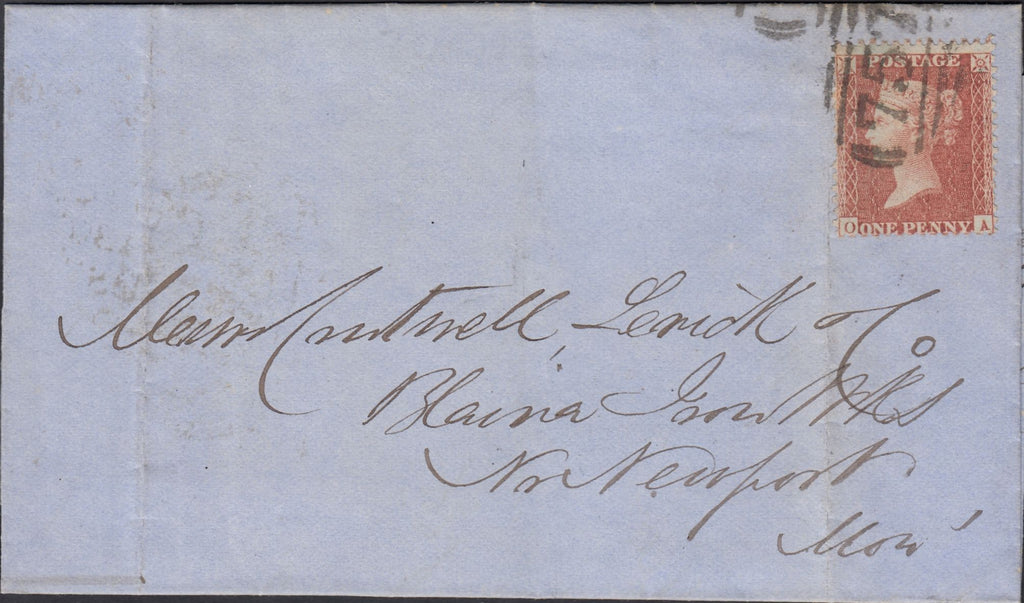 POSTAGE
O ONE PENNY A
Messrs Cruttwell, Levick & Co
Blaina Iron Wks
Nr Newport
Mon'